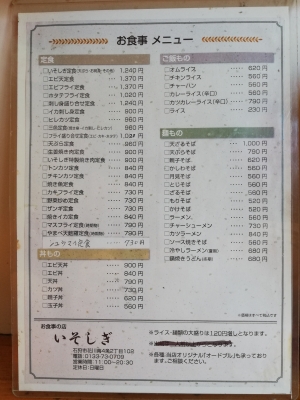 お食事 メニュー
定食
いそしぎ定食 1,240円
エビ天定食 1,370円
エビフライ定食 1,370円
ホタテフライ定食 1,100円
刺し身盛り合せ定食 1,240円
イカ刺し身定食 900円
ヒレカツ定食 960円
天ぷら定食 980円
生姜焼き肉定食 900円
いそしぎ特製焼き肉定食 900円
トンカツ定食 900円
チキンカツ定食 900円
焼き魚定食 840円
カキフライ定食 790円
野菜炒め定食 790円
ザンギ定食 790円
焼きイカ定食 790円
マスフライ定食 790円
やまべ天婦羅定食 790円
丼もの
エビ天丼 900円
エビ丼 840円
天丼 790円
カツ丼 730円
親子丼 560円
玉子丼 560円
ご飯もの
オムライス 620円
チキンライス 560円
チャーハン 560円
カレーライス（辛口） 680円
カツカレーライス（辛口） 790円
ライス 230円
麺もの
天ざるそば 1,000円
天ぷらそば 790円
親子そば 620円
かしわそば 560円
月見そば 560円
とじそば 560円
ざるそば 560円
もりそば
かけそば
ラーメン
チャーシューメン 730円
カレーラーメン
ソース焼きそば 560円
冷やしラーメン（夏期） 680円
鍋焼きうどん（冬期） 680円
お食事の店
いそしぎ
電話:0133-73-0709
営業時間:11:00～20:30
定休日:日曜日
※ライス・麺類の大盛りは120円増しとなります。
※各種、当店オリジナル「オードブル」も承っております。
ご相談ください。